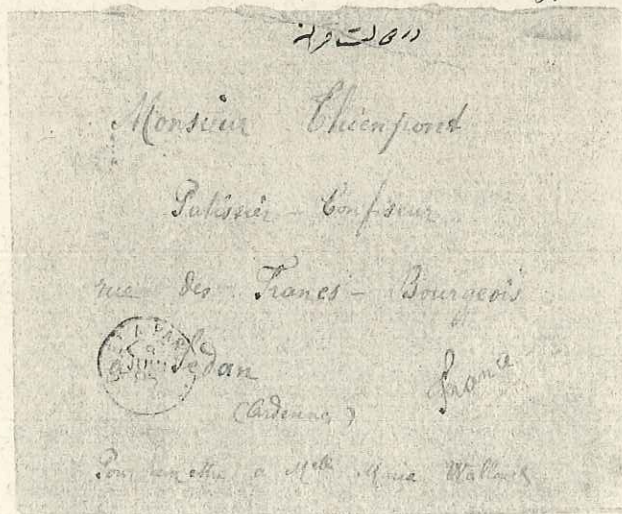 Monsieur Thienpont
Patissier - Confiseur
rue des Francs - Bourgeois
à Sedan
France
(Ardennes)
Pour remettre a Melle Maria